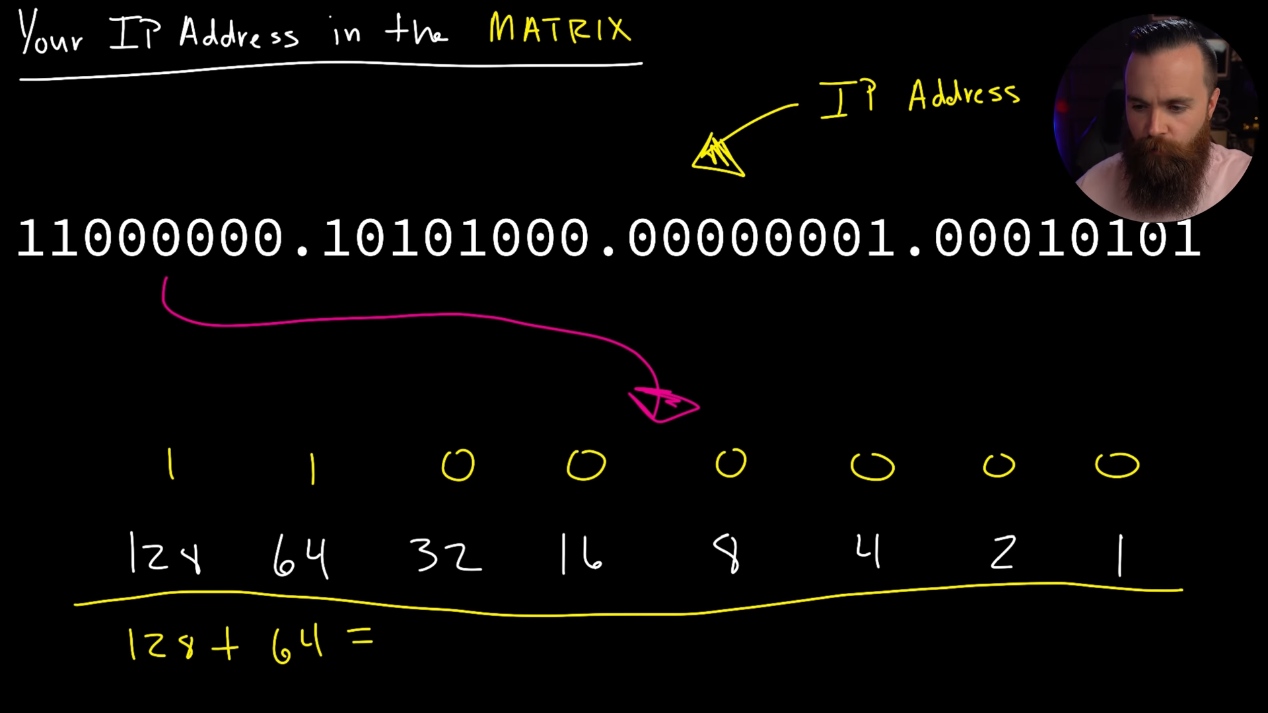 Your IP Address in the MATRIX
IP Address
11000000.10101000.00000001.00010101
1 1 0 0 0 0 0 0
128 64 32 16 8 4 2 1
128 + 64 =